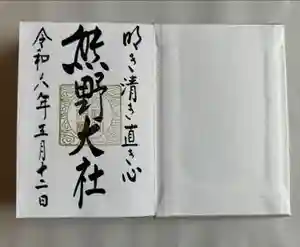 明き清き直き心
熊野大社
令和八年五月十二日